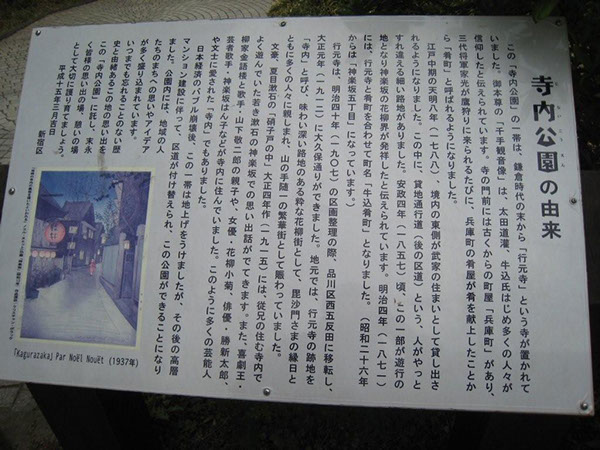 寺内公園の由来
じないこうえん
この「寺内公園」の一帯は、鎌倉時代の末から「行元寺」という寺が置かれて
いました。御本尊の「千手観音像」は、太田道灌、牛込氏はじめ多くの人々が
信仰したと伝えられています。寺の門前には古くからの町屋「兵庫町」があり、
三代将軍家光が鷹狩りに来られるたびに、兵庫町の肴屋が肴を献上したことか
ら「肴町」と呼ばれるようになりました。
江戸中期の天明八年（一七八八）、境内の東側が武家の住まいとして貸し出さ
れるようになりました。この中に、貸地通行道（後の区道）という、人がやっと
すれ違える細い路地がありました。安政四年（一八五七）頃、この一部が遊行の
地となり神楽坂の花柳界が発祥したと伝えられています。明治四年（一八七一）
には、行元寺と肴町を合わせて町名「牛込肴町」となりました。（昭和二十六年
からは「神楽坂五丁目」になっています。）
行元寺は、明治四十年（一九〇七）の区画整理の際、品川区西五反田に移転し、
大正元年（一九一二）に大久保通りができました。地元では、行元寺の跡地を
「寺内」と呼び、味わい深い路地のある粋な花柳街として、毘沙門さまの縁日と
ともに多くの人々に親しまれ、山の手随一の繁華街として賑わっていました。
文豪、夏目漱石の「硝子戸の中」大正四年作（一九一五）には、従兄の住む寺内で
よく遊んでいた若き漱石の神楽坂での思い出話がでてきます。また、喜劇王・
柳家金語楼と歌手・山下敬二郎の親子や、女優・花柳小菊、俳優・勝新太郎、
芸者歌手・神楽坂はん子などが寺内に住んでいました。このように多くの芸能人
や文士に愛された「寺内」でもありました。
日本経済のバブル崩壊後、この一帯は地上げをうけましたが、その後の高層
マンション建設に伴って、区道が付け替えられ、この公園ができることになり
ました。公園内には、地域の人
たちのまちへの思いやアイデア
が多く盛り込まれています。
いつまでも忘れることのない歴
史と由緒あるこの地の思い出を
この「寺内公園」に託し、末永
く皆様の思い出の場、憩いの場
として大切に護り育てましょう。
平成十五年三月吉日
新宿区
『Kagurazaka』 Par Noël Nouët (1937年)